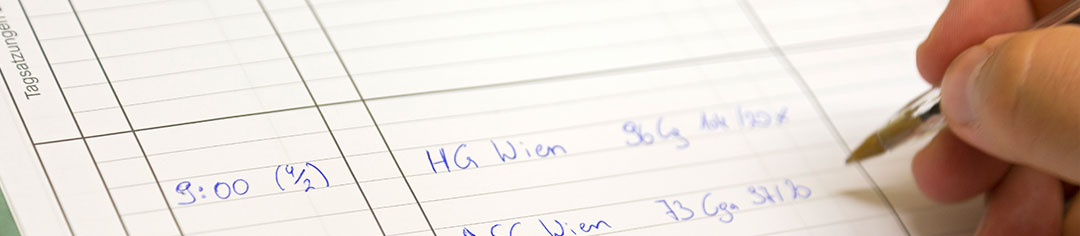 Tagsatzungen
9:00 (4/2) HG Wien 96 Cg
Wien 73 Cga 37/20